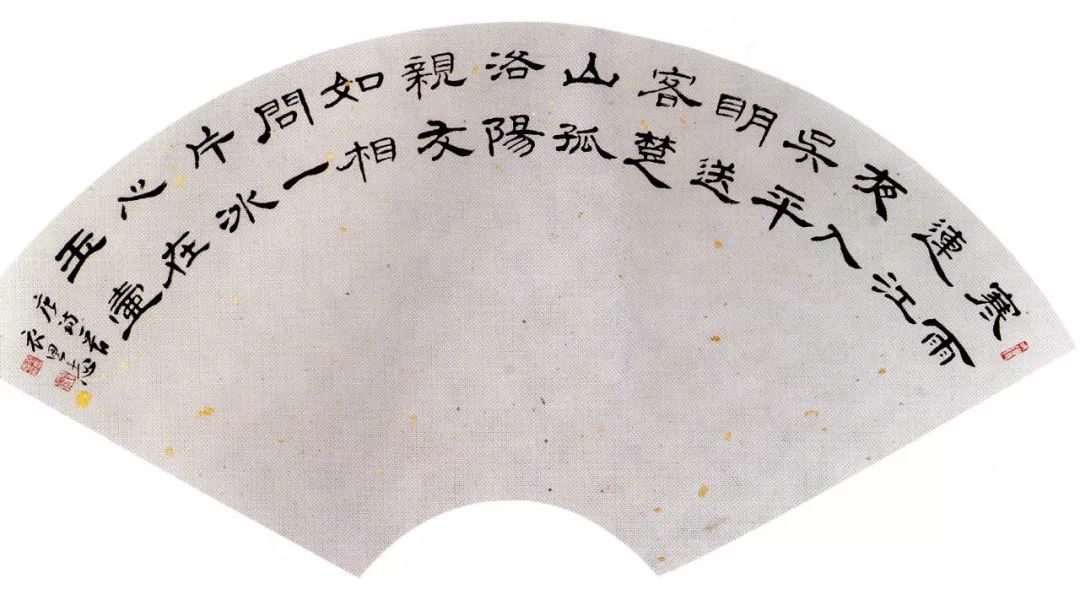 寒雨
連江
夜入
吳平
明送
客楚
山孤
洛陽
親友
如相
問一
片冰
心在
玉壺
唐詩